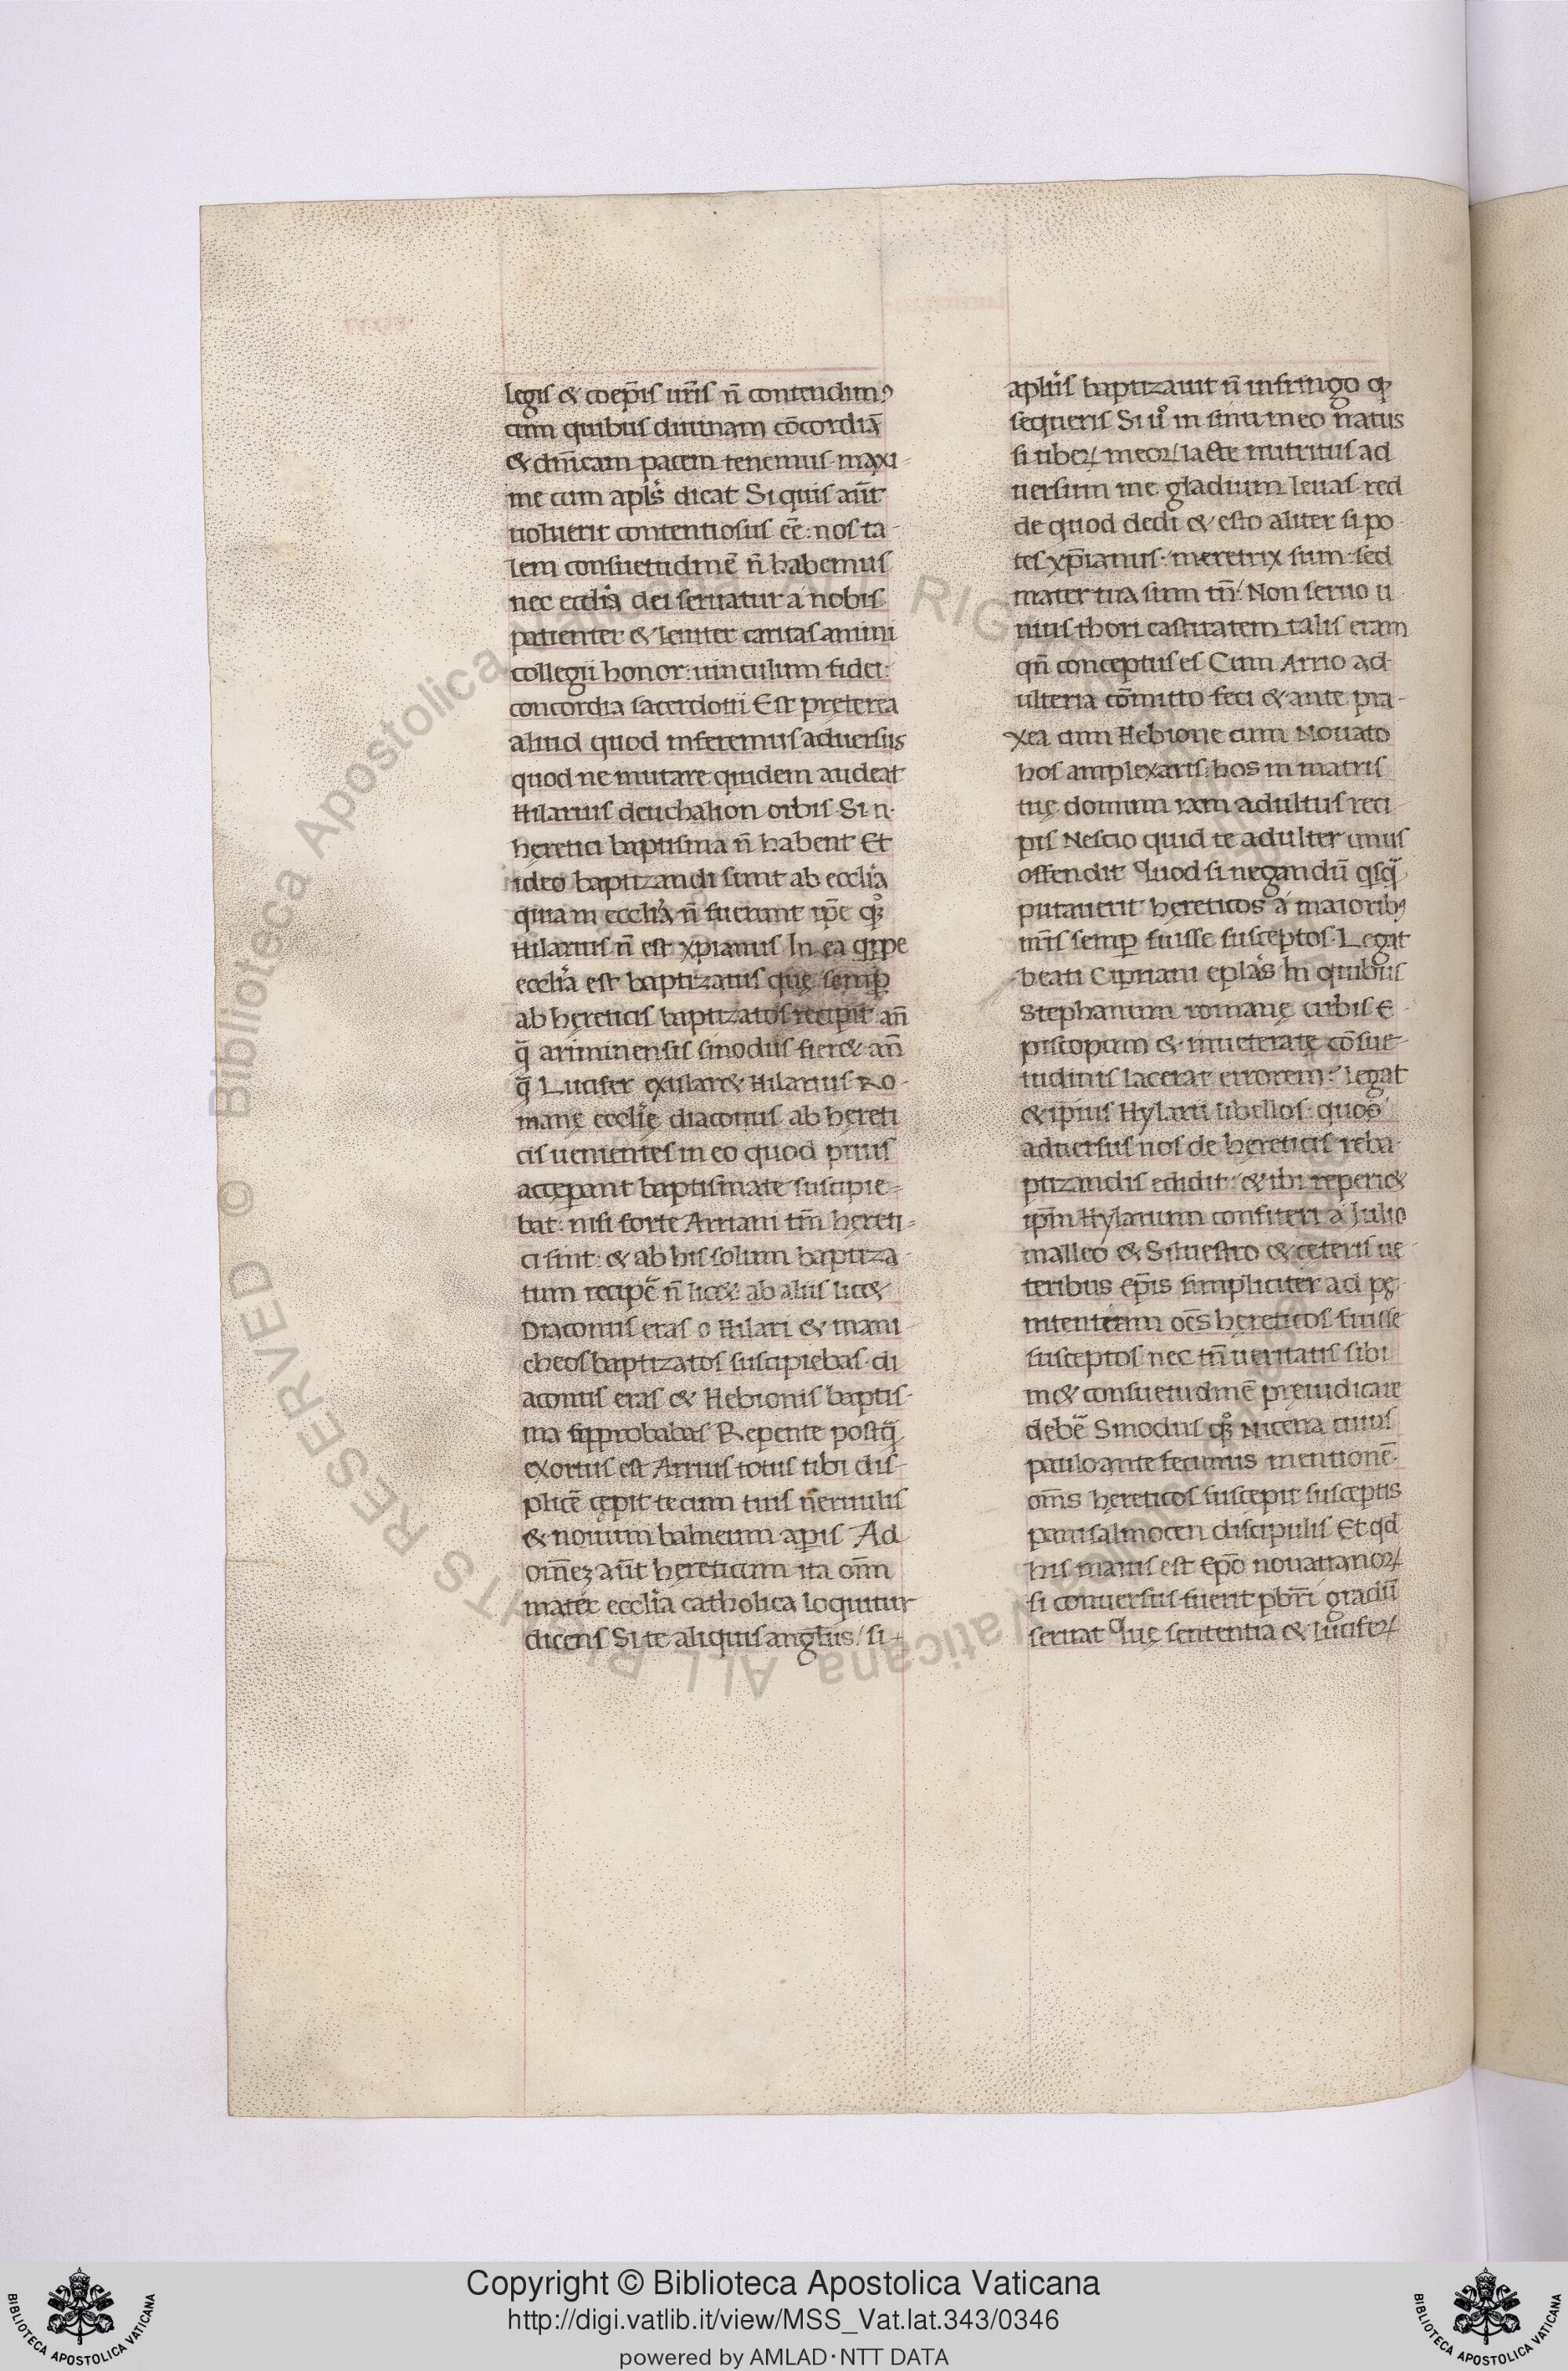 legis & coep̄is ur̄is n̄ contendim⁹
cum quibus diuinam cōcordiā
& dn̄icam pacem tenemus maxi-
me cum apls̄ dicat Si quis aūt
uoluerit contentiosus eē: nos ta-
lem consuetudinē n̄ habemus
nec eccl̄ia dei seruatur a nobis
patienter & leniter caritas animi
collegii honor: uinculum fidei:
concordia sacerdotii Est pręterea
aliud quod inferemus aduersus
quod ne mutare quidem audeat
Hilarius deuchalion orbis Si n·
hęretici baptisma n̄ habent Et
ideo baptizandi sunt ab eccl̄ia
quia in eccl̄ia n̄ fuerunt ip̄e q̊ꝫ
Hilarius n̄ est xp̄ianus In ea q̥ippe
eccl̄ia est baptizatus quę semꝑ
ab hęreticis baptizatos recipit an̄
q̄ ariminensis sinodus fier& an̄
q̄ Lucifer exular& Hilarius Ro-
manę eccl̄ię diaconus ab hęreti
cis uenientes in eo quod prius
accęperant baptismate suscipie-
bat: nisi forte Arriani tm̄ hęreti-
ci sint: & ab his solum baptiza-
tum recipē n̄ lice& ab aliis lice&
Diaconus eras o Hilari & mani
cheos baptizatos suscipiebas di
aconus eras & Hebionis baptis-
ma sup̱probabas Repente postq̄
exortus est Arrius totus tibi dis-
plicē cępit te cum tuis uernulis
& nouum balneum aꝑis Ad
om̄eꝫ aūt hęreticum ita om̄n
mater eccl̄ia catholica loquitur
dicens Si te aliquis anglus / si-
aplūs baptizauit n̄ infringo qꝫ
sequeris Si ů in sinu meo natus
si uberꝝ meoꝝ lacte nutritus ad
uersum me gladium leuas red
de quod dedi & esto aliter si po
tes xp̄ianus· meretrix sum: sed
mater tua sum tn̄ Non seruo u
nius thori castitatem talis eram
qn̄ conceptus es Cum Arrio ad
ulteria cōmitto feci & ante pra-
xea cum Hebione cum Nouato
hos amplexaris hos in matris
tuę domum iam adultus reci
pis Nescio quid te adulter unus
offendit Quod si negandū qsq̄
putauerit hęreticos a maiorib⁹
nr̄is semꝑ fuisse susceptos Legat
beati Cipriani eplas̄ In quibus
Stephanum romanę urbis E
piscopum & inueteratę cōsue-
tudinis lacerat errorem: legat
& ipsius Hylarii libellos: quos
aduersus nos de hęreticis reba
ptizandis edidit: & ibi reperi&
ip̄m Hylarium confiteri a Iulio
malleo & Siluestro & cęteris ue
teribus ep̄is simpliciter ad pę
nitentiam oēs hęreticos fuisse
susceptos nec tn̄ ueritatis sibi
in& consuetudinē preiudicare
debē Sinodus q̊ꝫ Nicena cuius
paulo ante fecimus mentionē
om̄s hęreticos suscepit susceptis
pauli salmocen discipulis Et qd̄
his maius est Ep̄o nouatianoꝝ
si conuersus fuerit pbr̄i gradū
seruat Quę sententia & luciferꝝ